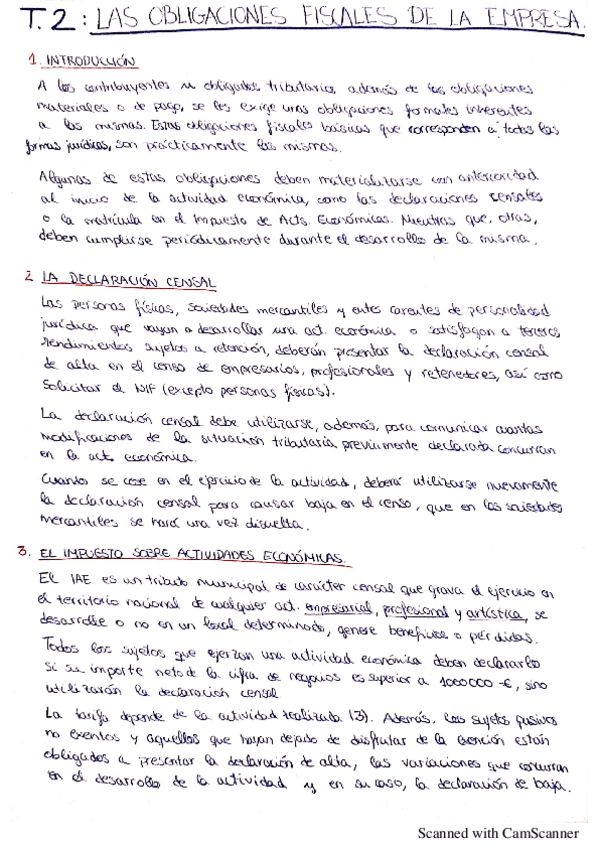 T.2: LAS OBLIGACIONES FISCALES DE LA EMPRESA.
1. INTRODUCCIÓN
A los contribuyentes u obligados tributarios, además de las obligaciones
materiales o de pago, se les exige unas obligaciones formales inherentes
a las mismas. Estas obligaciones fiscales básicas que corresponden a todas las
formas jurídicas, son prácticamente las mismas.
Algunas de estas obligaciones deben materializarse con anterioridad
al inicio de la actividad económica, como las declaraciones censales
o la matrícula en el Impuesto de Acts. Económicas. Mientras que, otras,
deben cumplirse periódicamente durante el desarrollo de la misma.
2 LA DECLARACIÓN CENSAL
Las personas físicas, sociedades mercantiles y entes carentes de personalidad
jurídica que vayan a desarrollar una act. económica o satisfagan a terceros
rendimientos sujetos a retención, deberán presentar la declaración censal
de alta en el censo de empresarios, profesionales y retenedores, así como
solicitar el NIF (excepto personas físicas).
La declaración censal debe utilizarse, además, para comunicar cuantas
modificaciones de la situación tributaria previamente declarada concurran
en la act. económica.
Cuando se cese en el ejercicio de la actividad, deberá utilizarse nuevamente
la declaración censal para causar baja en el censo, que en las sociedades
mercantiles se hará una vez disuelta.
3. EL IMPUESTO SOBRE ACTIVIDADES ECONÓMICAS.
El IAE es un tributo municipal de carácter censal que grava el ejercicio en
el territorio nacional de cualquier act. empresarial, profesional y artística, se
desarrolle o no en un local determinado, genere beneficios o pérdidas.
Todos los sujetos que ejerzan una actividad económica deben declararlo
si su importe neto de la cifra de negocios es superior a 1000000 €, sino
utilizarán la declaración censal.
La tarifa depende de la actividad realizada (3). Además, los sujetos pasivos
no exentos y aquellos que hayan dejado de disfrutar de la exención están
obligados a presentar la declaración de alta, las variaciones que concurran
en el desarrollo de la actividad y en su caso, la declaración de baja.
Scanned with CamScanner